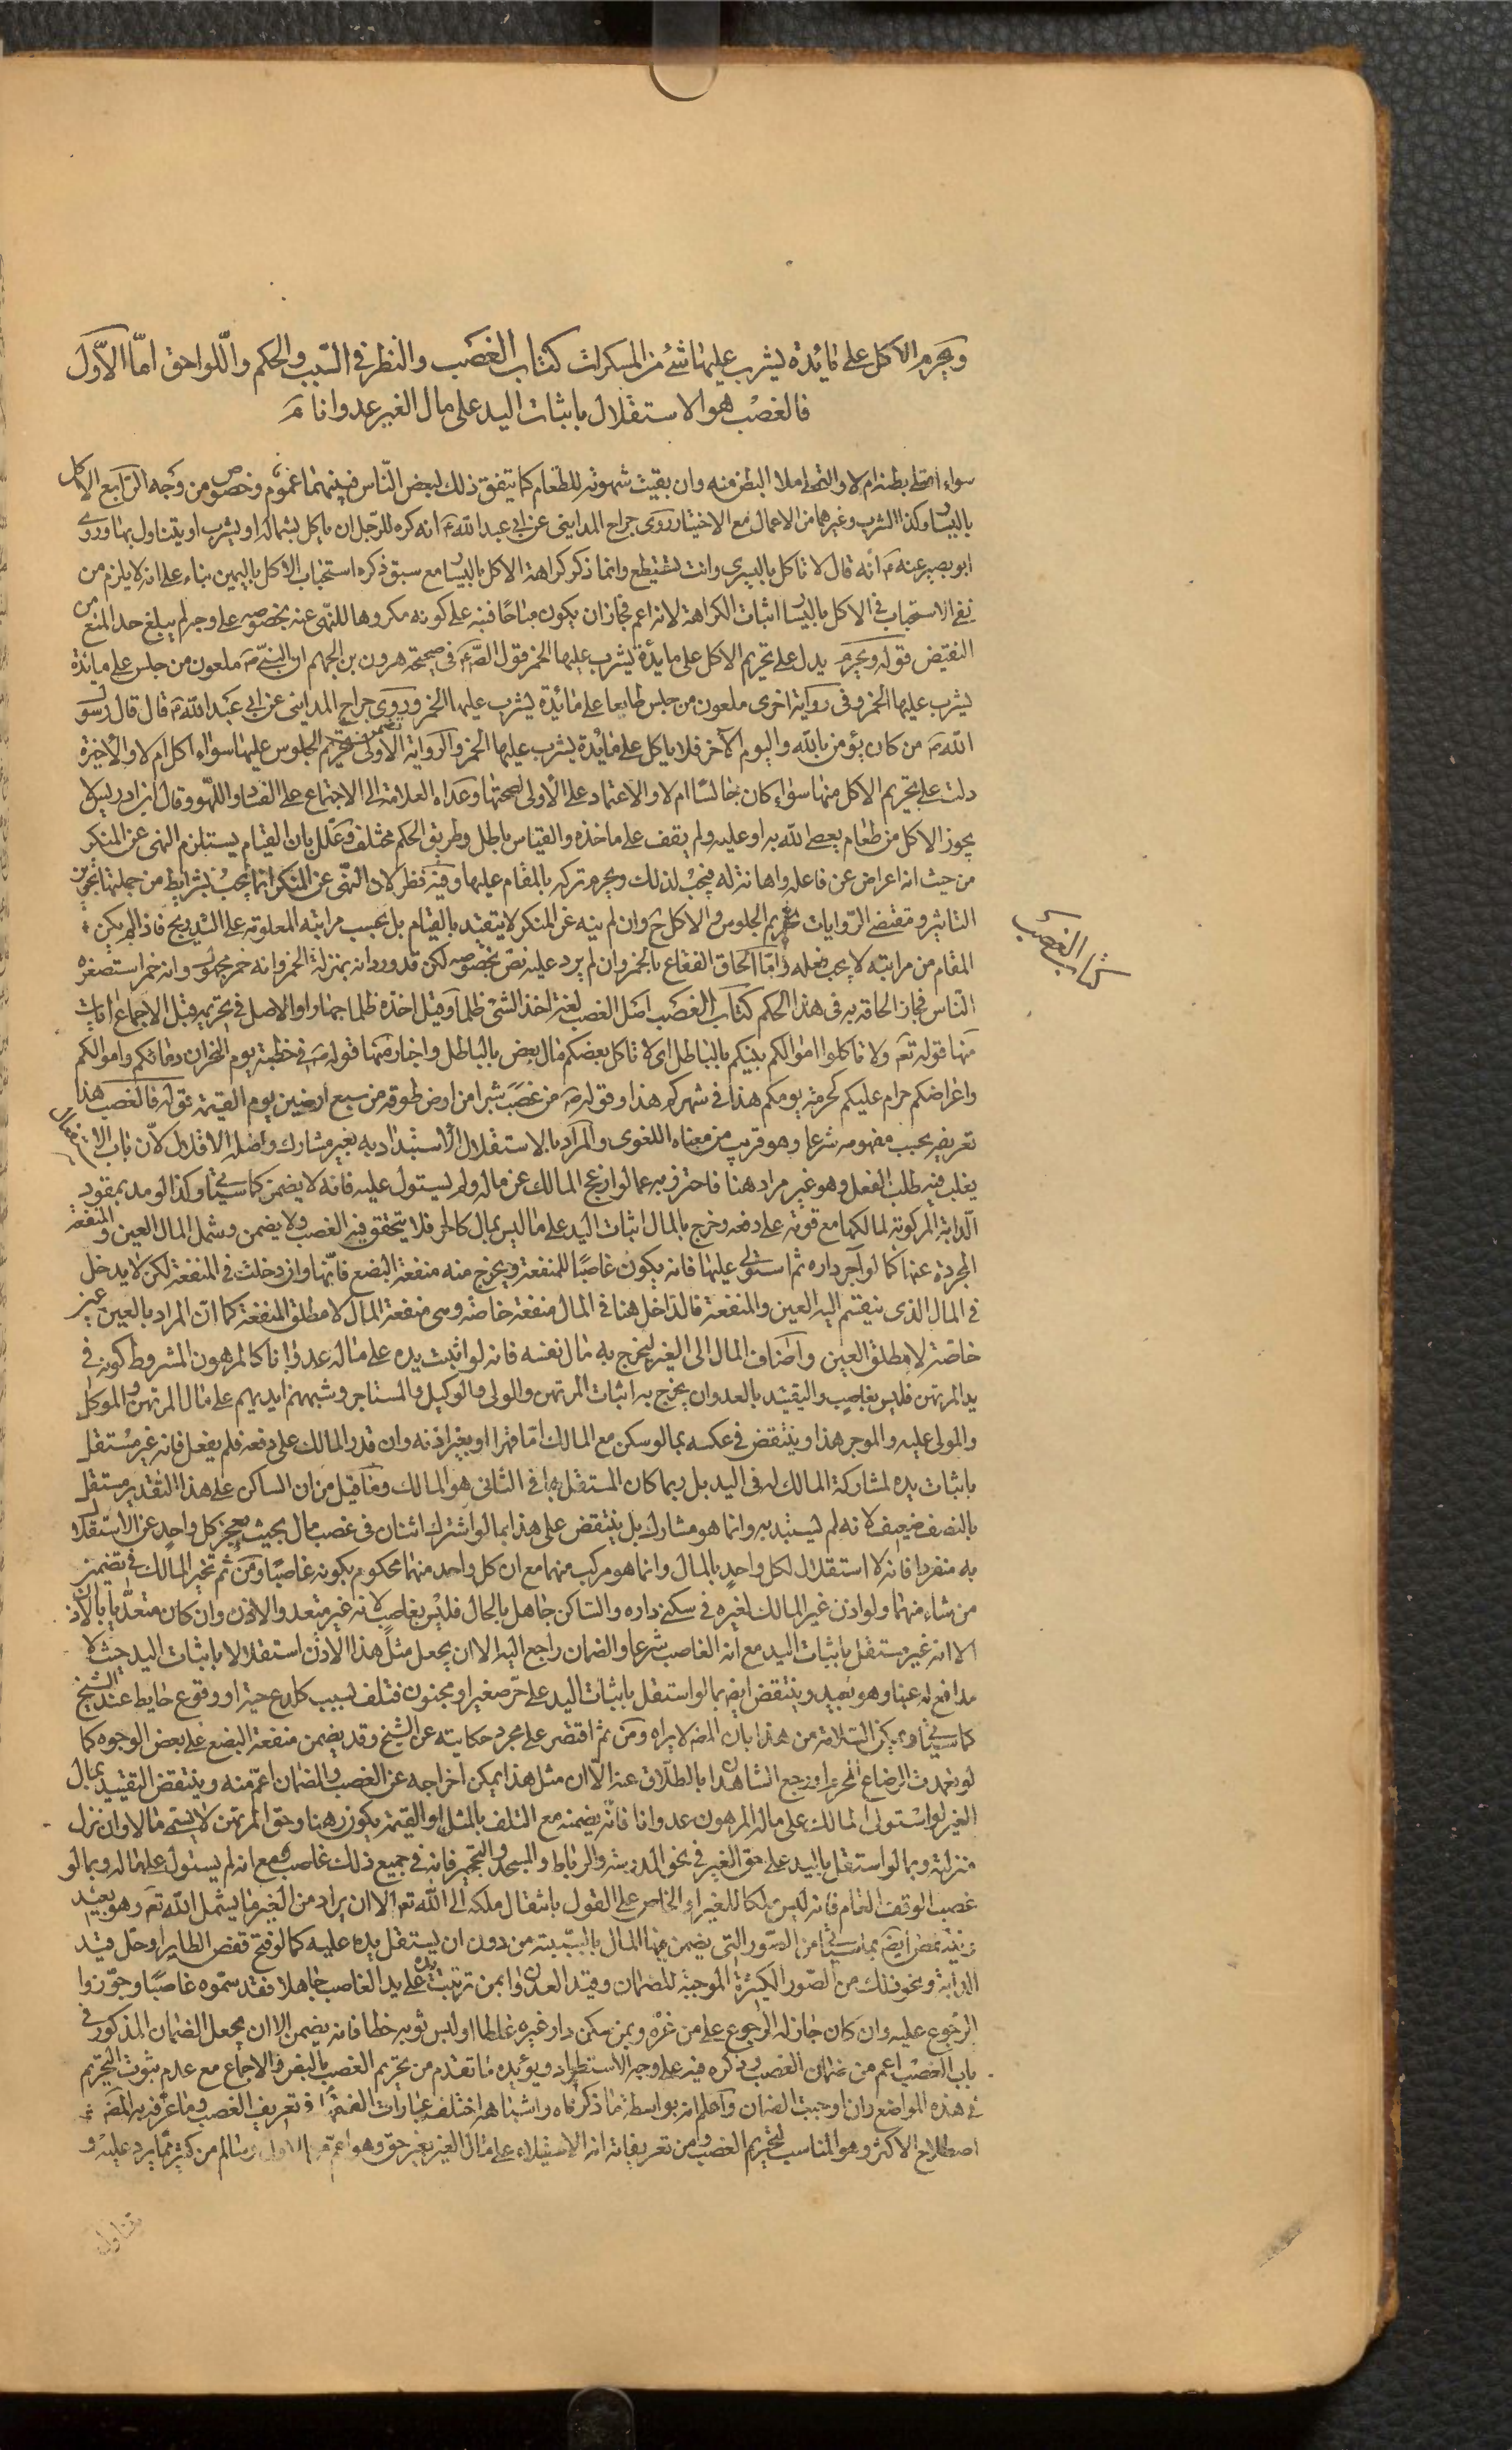 ويحرم الاكل على مائدة يشرب عليها شئ من المسكرات كتاب الغصب والنظر في السبب والحكم واللواحق امّا الاوّل
فالغصب هو الاستقلال باثبات اليد على مال الغير عدوانا مَ
سواء امتلى بطنه ام لا والتملى املا البطن منه وان بقيت شهوته للطعام كما يتفق ذلك لبعض النّاس فبينهما عموم وخصوص من وجه الرّابع الاكل
باليسار وكذا الشرب وغيرهما من الاعمال مع الاختيار روى جراح المدايني عن ابي عبد الله ع انه كره للرّجل ان ياكل بشماله او يشرب او يتناول بها وروى
ابو بصير عنه ع انّه قال لا تاكل باليسرى وانت تستطيع وانما ذكر كراهة الاكل باليسار مع سبق ذكره استحباب الاكل باليمين بناء على انه لا يلزم من
نفي الاستحباب في الاكل باليسار اثبات الكراهة لانه اعم فجاز ان يكون مباحًا فنبه على كونه مكروها للنهى عنه بخصوصه على وجه لم يبلغ حد المنع من
النقيض قوله ويحرم يدل على تحريم الاكل على مائدة يشرب عليها الخمر قول الصّ ع في صحيحة هرون بن الجهم ان النبيّ ص ملعون من جلس على مائدة
يشرب عليها الخمر وفى رواية اخرى ملعون من جلس طايعا على مائدة يشرب عليها الخمر وروى جراح المدايني عن ابي عبد الله ع قال قال رسو
الله ص من كان يؤمن بالله واليوم الآخر فلا ياكل على مائدة يشرب عليها الخمر والرواية الاولى تضمنت تحريم الجلوس عليها سواء اكل ام لا والاخيرة
دلت على تحريم الاكل منها سواء كان جالسًا ام لا والاعتماد على الاولى لصحتها وعداه العلامة الى الاجتماع على الفساد واللهو وقال ابن ادريس لا
يجوز الاكل من طعام يعصى الله به او عليه ولم يقف على ماخذه والقياس باطل وطريق الحكم مختلف وعلّل بان القيام يستلزم النهى عن المنكر
من حيث انه اعراض عن فاعله واهانة له فيجب لذلك ويحرم تركه بالمقام عليها وفيه نظر لان النّهى عن المنكر انما يجب بشرايط من جملتها تجويز
التاثير ومقتضى الرّوايات تحريم الجلوس والاكل ح وان لم ينه عن المنكر لا يتقيد بالقيام بل بحسب مراتبه المعلومة على التدريج فاذا لم يكن
المقام من مراتبه لا يجب فعله وامّا الحاق الفقاع بالخمر وان لم يرد عليه نص بخصوصه لكن قد ورد انه بمنزلة الخمر وانه خمر مجهول وانه خمر استصغره
النّاس فجاز الحاقه به في هذا الحكم كتاب الغصب اصل الغصب لغة اخذ الشئ ظلما وقيل اخذه ظلما جهارا والاصل في تحريمه قبل الاجماع آيات
منها قوله تعَ ولا تاكلوا اموالكم بينكم بالباطل اى لا تاكل بعضكم مال بعض بالباطل واخبار منها قوله ص في خطبته يوم النحر ان دماءكم واموالكم
واعراضكم حرام عليكم كحرمة يومكم هذا في شهركم هذا وقوله ص من غصب شبرا من ارض طوقه من سبع ارضين يوم القيمة قوله فالغصب هذا
تعريفه بحسب مفهومه شرعا وهو قريب من معناه اللغوى والمراد بالاستقلال الاستبداد به بغير مشارك واصله الاقلال لان باب الاستفعال
يغلب فيه طلب الفعل وهو غير مراد هنا فاحترز به عما لو ازعج المالك عن ماله ولم يستول عليه فانه لا يضمن كما سيجئ وكذا لو مد بمقود
الدابة المركوبة لمالكها مع قوته على دفعه وخرج بالمال اثبات اليد على ما ليس بمال كالحر فلا يتحقق فيه الغصب ولا يضمن وشمل المال العين والمنفعة
المجردة عنها كما لو آجر داره ثم استولى عليها فانه يكون غاصبًا للمنفعة ويخرج منه منفعة البضع فانّها وان دخلت في المنفعة لكن لا يدخل
في المال الذى ينقسم اليه العين والمنفعة فالداخل هنا في المال منفعة خاصة وهى منفعة المال لا مطلق المنفعة كما انّ المراد بالعين عين
خاصّة لا مطلق العين واضاف المال الى الغير ليخرج به مال نفسه فانه لو اثبت يده على ماله عدوانا كالمرهون المشروط كونه في
يد المرتهن فليس بغاصب والتقييد بالعدوان يخرج به اثبات المرتهن والولى والوكيل والمستاجر وشبههم ايديهم على مال المرتهن والموكل
والمولى عليه والموجر هذا وينتقض في عكسه بما لو سكن مع المالك امّا قهرا او بغير اذنه وان قدر المالك على دفعه فلم يفعل فانه غير مستقل
باثبات يده لمشاركة المالك له في اليد بل ربما كان المستقل بها في الثانى هو المالك وما قيل من ان الساكن على هذا التقدير مستقل
بالنصف ضعيف لانه لم يستبد به وانما هو مشارك بل ينتقض على هذا بما لو اشترك اثنان في غصب مال بحيث يعجز كل واحد عن الاستقلال
به منفردا فانه لا استقلال لكل واحد بالمال وانما هو مركب منهما مع ان كل واحد منهما محكوم بكونه غاصبًا ومن ثم تخير المالك في تضمين
من شاء منهما ولو اذن غير المالك لغيره في سكنى داره والساكن جاهل بالحال فليس بغاصب لانه غير متعد والاذن وان كان متعدّيا بالاذن
الا انه غير مستقل باثبات اليد مع انه الغاصب شرعا والضمان راجع اليه الا ان يجعل مثل هذا الاذن استقلالا باثبات اليد حيث لا
مدافع له عينا وهو بعيد وينتقض ايضا بما لو استقل باثبات اليد على حرّ صغير او مجنون فتلف بسبب كلدغ حية او وقوع حايط عند الشيخ
كما سيجئ ويمكن السلامة من هذا بان المص لا يراه ومن ثم اقتصر على مجرد حكايته عن الشيخ وقد يضمن منفعة البضع على بعض الوجوه كما
لو تعمدت الرضاع المحرم او رجع الشاهدان بالطلاق عنه الّا ان مثل هذا يمكن اخراجه عن الغصب والضمان اعمّ منه وينتقض التقييد بمال
الغير لو استولى المالك على ماله المرهون عدوانا فانّه يضمنه مع التلف بالمثل او القيمة يكون رهنا وحق المرتهن لا يسمى مالا وان نزل
منزلته وبما لو استقل باليد على حق الغير في نحو المدرسة والرباط والمسجد والتحجير فانه في جميع ذلك غاصب مع انه لم يستول على ماله وبما لو
غصب الوقف العام فانه ليس ملكا للغير او الخاص على القول بانتقال ملكه الى الله تعَ الا ان يراد من الغير ما يشمل الله تعَ وهو بعيد
وينتقض ايضَ بما سيجئ من الصّور التى يضمن فيها المال بالتسبيب من دون ان يستقل يده عليه كما لو فتح قفص الطاير او حلّ قيد
الدابة ونحو ذلك من الصّور الكثيرة الموجبة للضمان وقيد العدوان بمن ترتبت يده على يد الغاصب جاهلا فقد سمّوه غاصبًا وجوّزوا
الرجوع عليه وان كان جاز له الرجوع على من غرّه وبمن سكن دار غيره غلطا او لبس ثوبه خطا فانه يضمن الا ان يجعل الضمان المذكور في
باب الغصب اعم من ضمان الغصب وذكره فيه على وجه الاستطراد ويؤيده ما تقدم من تحريم الغصب بالنص والاجماع مع عدم ثبوت التحريم
في هذه المواضع وان اوجبت الضمان واعلم انه بواسطة ما ذكرناه واشباهه اختلفت عبارات الفقهاء في تعريف الغصب وما عرّفه به المصَ
اصطلاح الاكثر وهو المناسب لتحريم الغصب ومن تعريفاته انه الاستيلاء على مال الغير بغير حق وهو اعمّ من الاول وسالم من كثير ممّا يرد عليه و
كتاب الغصب
تناول